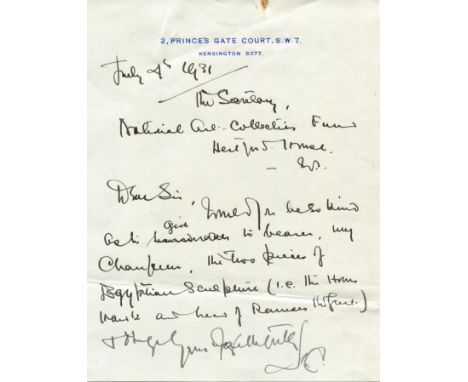 2, PRINCE'S GATE COURT. S.W. 7.
KENSINGTON 6277.
July 4th 1931
The Secretary,
National Art-Collections Fund
Hertford House.
Dear Sir, Would you be so kind
as to give to bearer, my
Chauffeur, the two pieces of
Egyptian Sculpture (i.e. the
head of Rameses the Great)
& oblige Yours faithfully